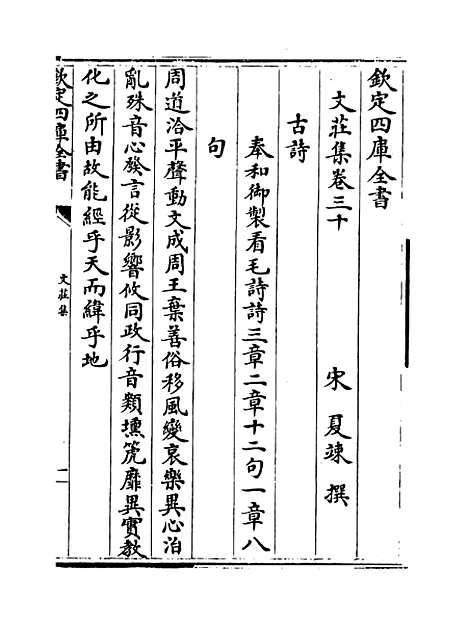 欽定四庫全書
文莊集卷三十
宋 夏竦 撰
古詩
奉和御製看毛詩詩三章二章十二句一章八
句
周道洽平聲動文成周王棄善俗移風變哀樂異心治
亂殊音心發言從影響攸同政行音類壎箎靡異寔教
化之所由故能經乎天而緯乎地
欽定四庫全書
文莊集
一